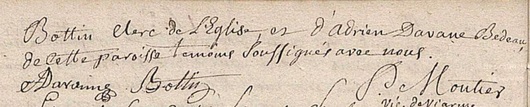 Bottin clerc de L'Eglise, et d'Adrien Davane Bedeau
de cette paroisse temoins soussignés avec nous.
ADavenne Bottin P. Moutier
vic. de